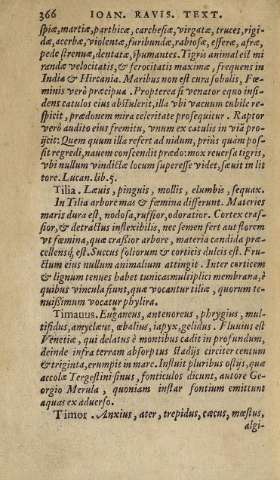 366 IOAN. RAVIS. TEXT.
spiæ, martiæ, parthicæ, carchesiæ, virgatæ, truces, rigi-
dæ, acerbæ, violentæ, furibundæ, rabiosæ, efferæ, afræ,
pede strenuæ, dentatæ, spumantes. Tigris animal est mi
randæ velocitatis, & ferocitatis maximæ, frequens in
India & Hircania. Maribus non est cura sobolis, Fœ-
minis verò præcipua. Propterea si venator equo insi-
dens catulos eius abstulerit, illa vbi vacuum cubile re-
spicit, prædonem mira celeritate prosequitur. Raptor
verò audito eius fremitu, vnum ex catulis in via pro-
ijcit: Quem quum illa refert ad nidum, priùs quàm pos-
sit regredi, nauem conscendit prædo: mox reuersa tigris,
vbi nullum vindictæ locum superesse videt, sæuit in lit
tore. Lucan. lib. 5.
Tilia. Læuis, pinguis, mollis, elumbis, sequax.
In Tilia arbore mas & fœmina differunt. Materies
maris dura est, nodosa, ruffior, odoratior. Cortex craf-
sior, & detractus inflexibilis, nec semen fert aut florem
vt fœmina, quæ crassior arbore, materia candida præ-
cellensq́; est. Succus foliorum & corticis dulcis est. Fru-
ctum eius nullum animalium attingit. Inter corticem
& lignum tenues habet tunicas multiplici membrana, è
quibus vincula fiunt, quæ vocantur tiliæ, quorum te-
nuissimum vocatur phylira.
Timauus. Euganeus, antenoreus, phrygius, mul-
tifidus, amyclæus, œbalius, iapyx, gelidus. Fluuius est
Venetiæ, qui delatus è montibus cadit in profundum,
deinde infra terram absorptus stadijs circiter centum
& triginta, erumpit in mare. Influit pluribus ostijs, quæ
accolæ Tergestini sinus, fonticulos dicunt, autore Ge-
orgio Merula, quoniam instar fontium emittunt
aquas ex aduerso.
Timor. Anxius, ater, trepidus, cæcus, mœstus,
algi-